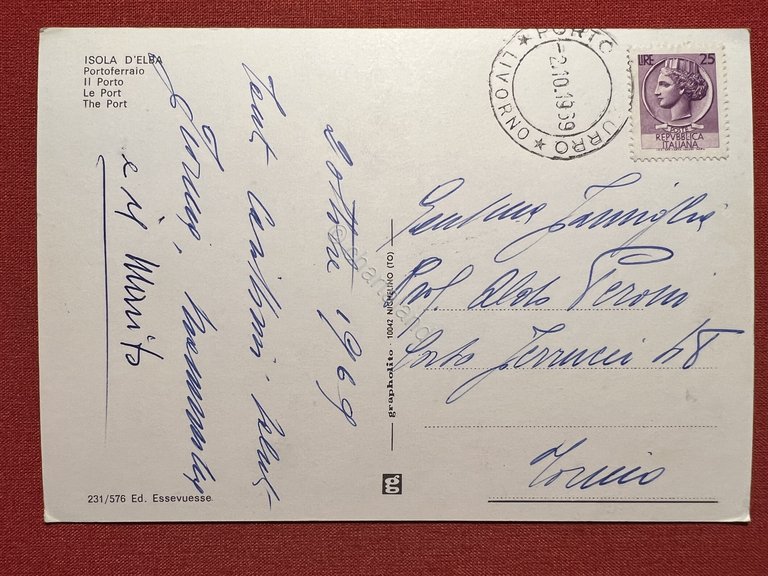 ISOLA D'ELBA
Portoferraio
Il Porto
Le Port
The Port
Ottobre 1969
Tanti Carissimi saluti
e il Marito
231/576 Ed. Essevuesse
grapholito - 10042 NICHELINO (TO)
g
PORTO AZZURRO
LIVORNO
-2.10.1969
LIRE 25
POSTE
REPVBBLICA
ITALIANA
Gentma Famiglia
Prof. Aldo Peroni
Corso Ferrucci 48
Torino